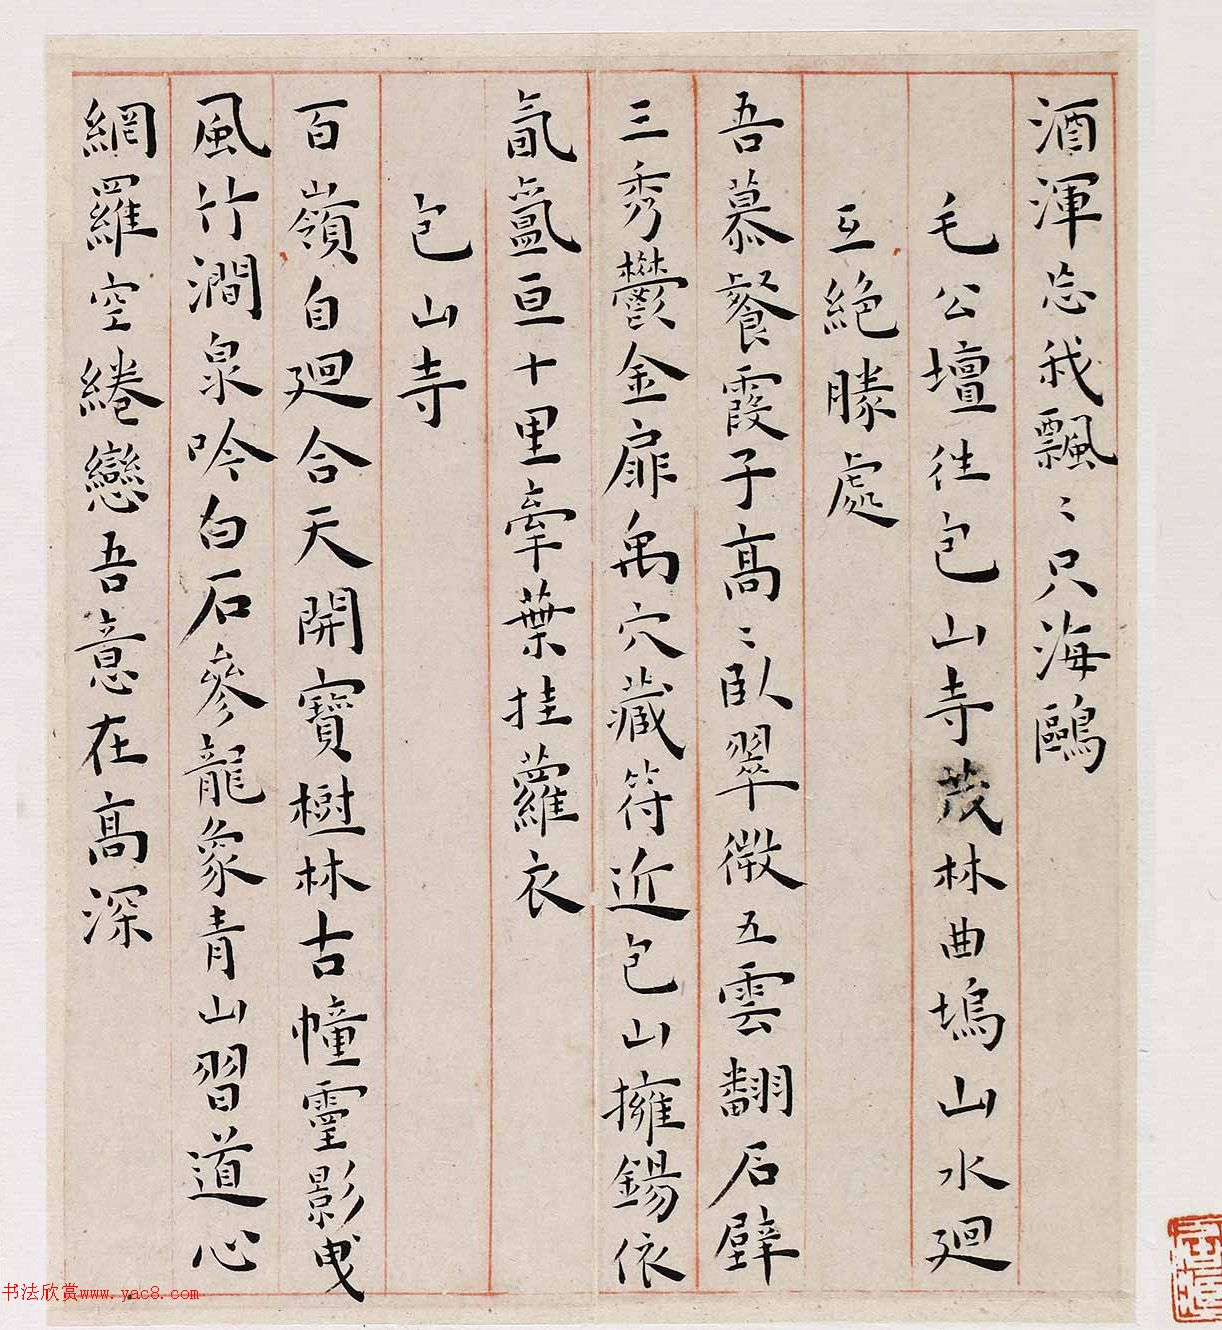 酒渾忘我飄〻只海鷗
毛公壇往包山寺茂林曲塢山水廻
互絶勝處
吾慕餐霞子高〻臥翠微五雲翻石壁
三秀鬱金扉禹穴藏符近包山擁錫依
氤氳亘十里牽葉挂蘿衣
包山寺
百嶺自廻合天開寶樹林古幢靈影曳
風竹澗泉吟白石參龍象青山習道心
網羅空綣戀吾意在高深
书法欣赏www.yac8.com